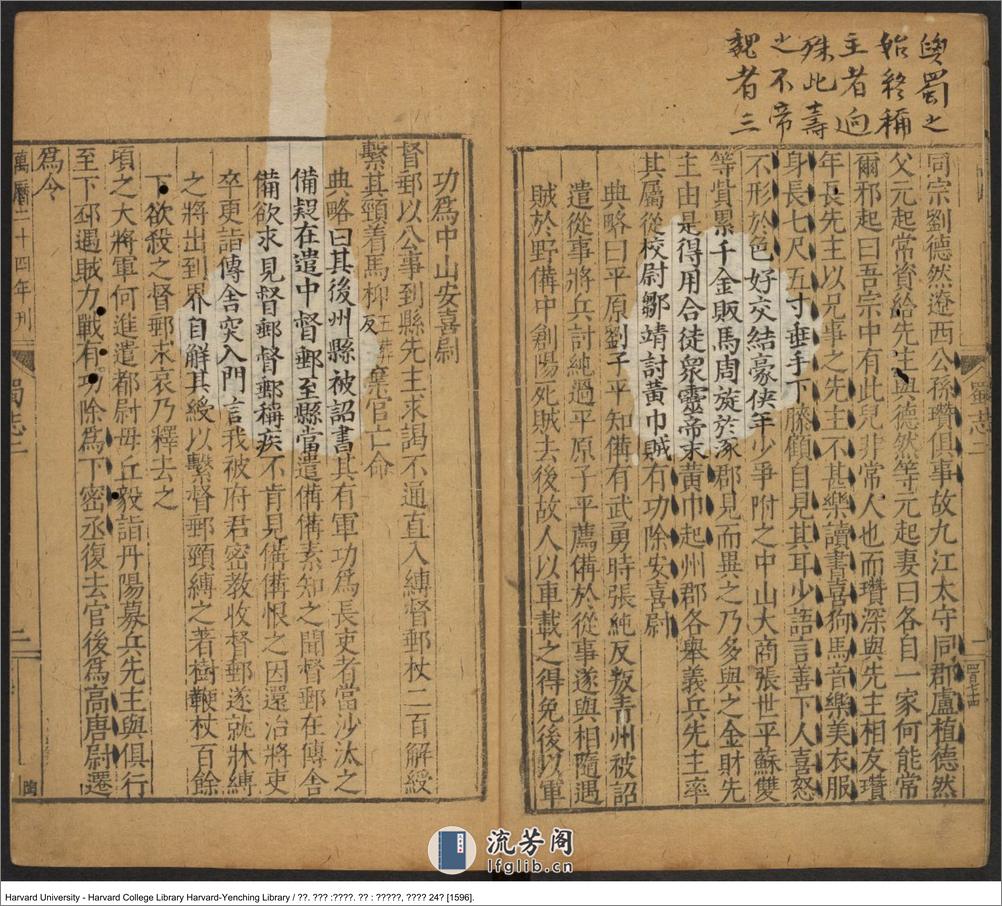 與蜀之
始終稱
主者迥
殊此壽
之不帝
魏者三
同宗劉德然遼西公孫瓚俱事故九江太守同郡盧植德然
父元起常資給先主與德然等元起妻曰各自一家何能常
爾邪起曰吾宗中有此兒非常人也而瓚深與先主相友瓚
年長先主以兄事之先主不甚樂讀書喜狗馬音樂美衣服
身長七尺五寸垂手下膝顧自見其耳少語言善下人喜怒
不形於色好交結豪俠年少爭附之中山大商張世平蘇雙
等貲累千金販馬周旋於涿郡見而異之乃多與之金財先
主由是得用合徒衆靈帝末黃巾起州郡各舉義兵先主率
其屬從校尉鄒靖討黃巾賊有功除安喜尉
典略曰平原劉子平知備有武勇時張純反叛青州被詔
遣從事將兵討純過平原子平薦備於從事遂與相隨遇
賊於野備中創陽死賊去後故人以車載之得免後以軍
蜀志二
一
功爲中山安喜尉
督郵以公事到縣先主求謁不通直入縛督郵杖二百解綬
繫其頸着馬枊五葬反棄官亡命
典略曰其後州縣被詔書其有軍功爲長吏者當沙汰之
備疑在遣中督郵至縣當遣備備素知之聞督郵在傳舍
備欲求見督郵督郵稱疾不肯見備備恨之因還治將吏
卒更詣傳舍突入門言我被府君密教收督郵遂就牀縛
之將出到界自解其綬以繫督郵頸縛之著樹鞭杖百餘
下欲殺之督郵求哀乃釋去之
頃之大將軍何進遣都尉毋丘毅詣丹陽募兵先主與俱行
至下邳遇賊力戰有功除爲下密丞復去官後爲高唐尉遷
爲令
萬曆二十四年刊
蜀志二
二
流芳阁
lfglib.cn
Harvard University - Harvard College Library Harvard-Yenching Library / ??. ??? :????. ?? : ?????, ???? 24? [1596].